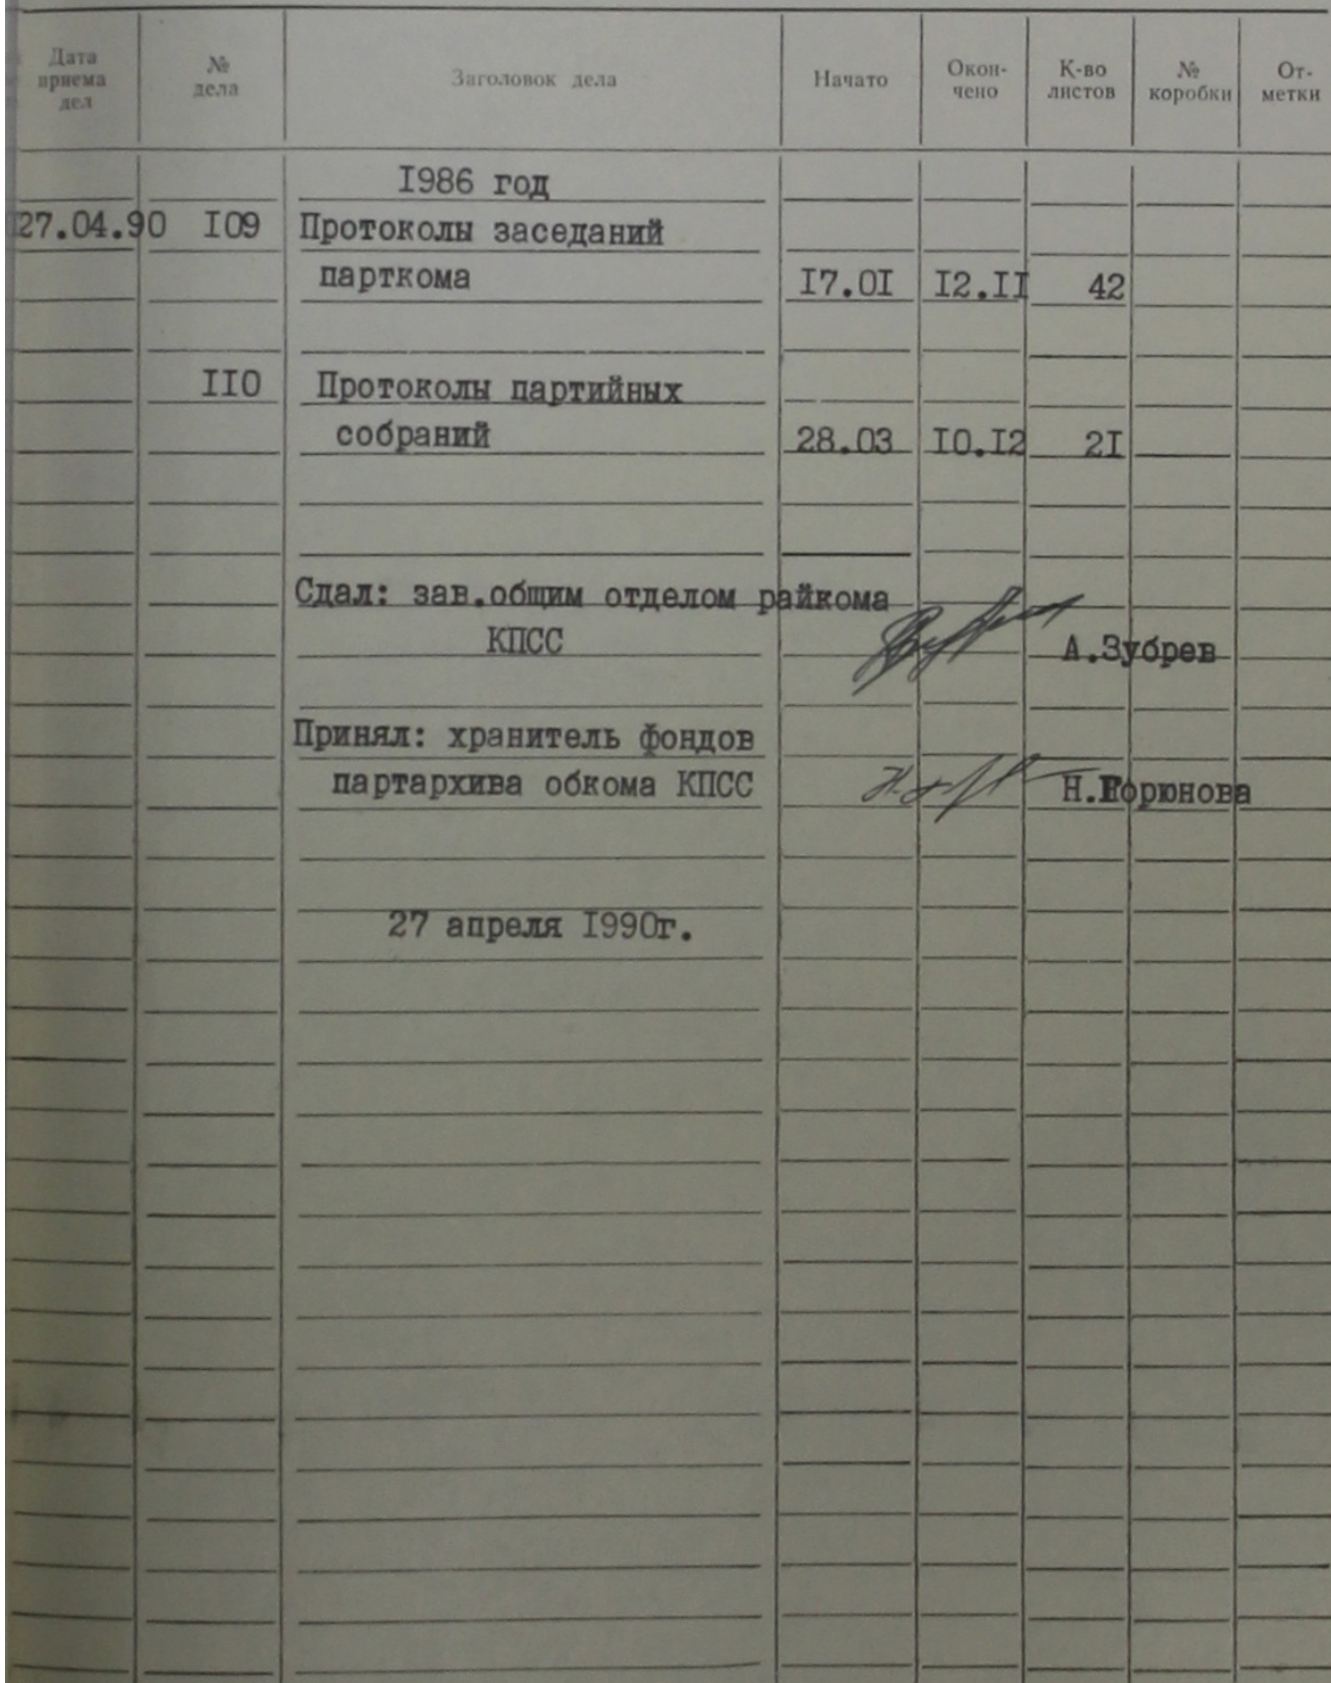 Дата приема дел № дела Заголовок дела Начато Окон- чено К-во листов № коробки От- метки
I986 год
27.04.90 I09 Протоколы заседаний
парткома I7.0I I2.II 42
II0 Протоколы партийных
собраний 28.03 I0.I2 2I
Сдал: зав.общим отделом райкома
КПСС А.Зубрев
Принял: хранитель фондов
партархива обкома КПСС Н.Горюнова
27 апреля I990г.